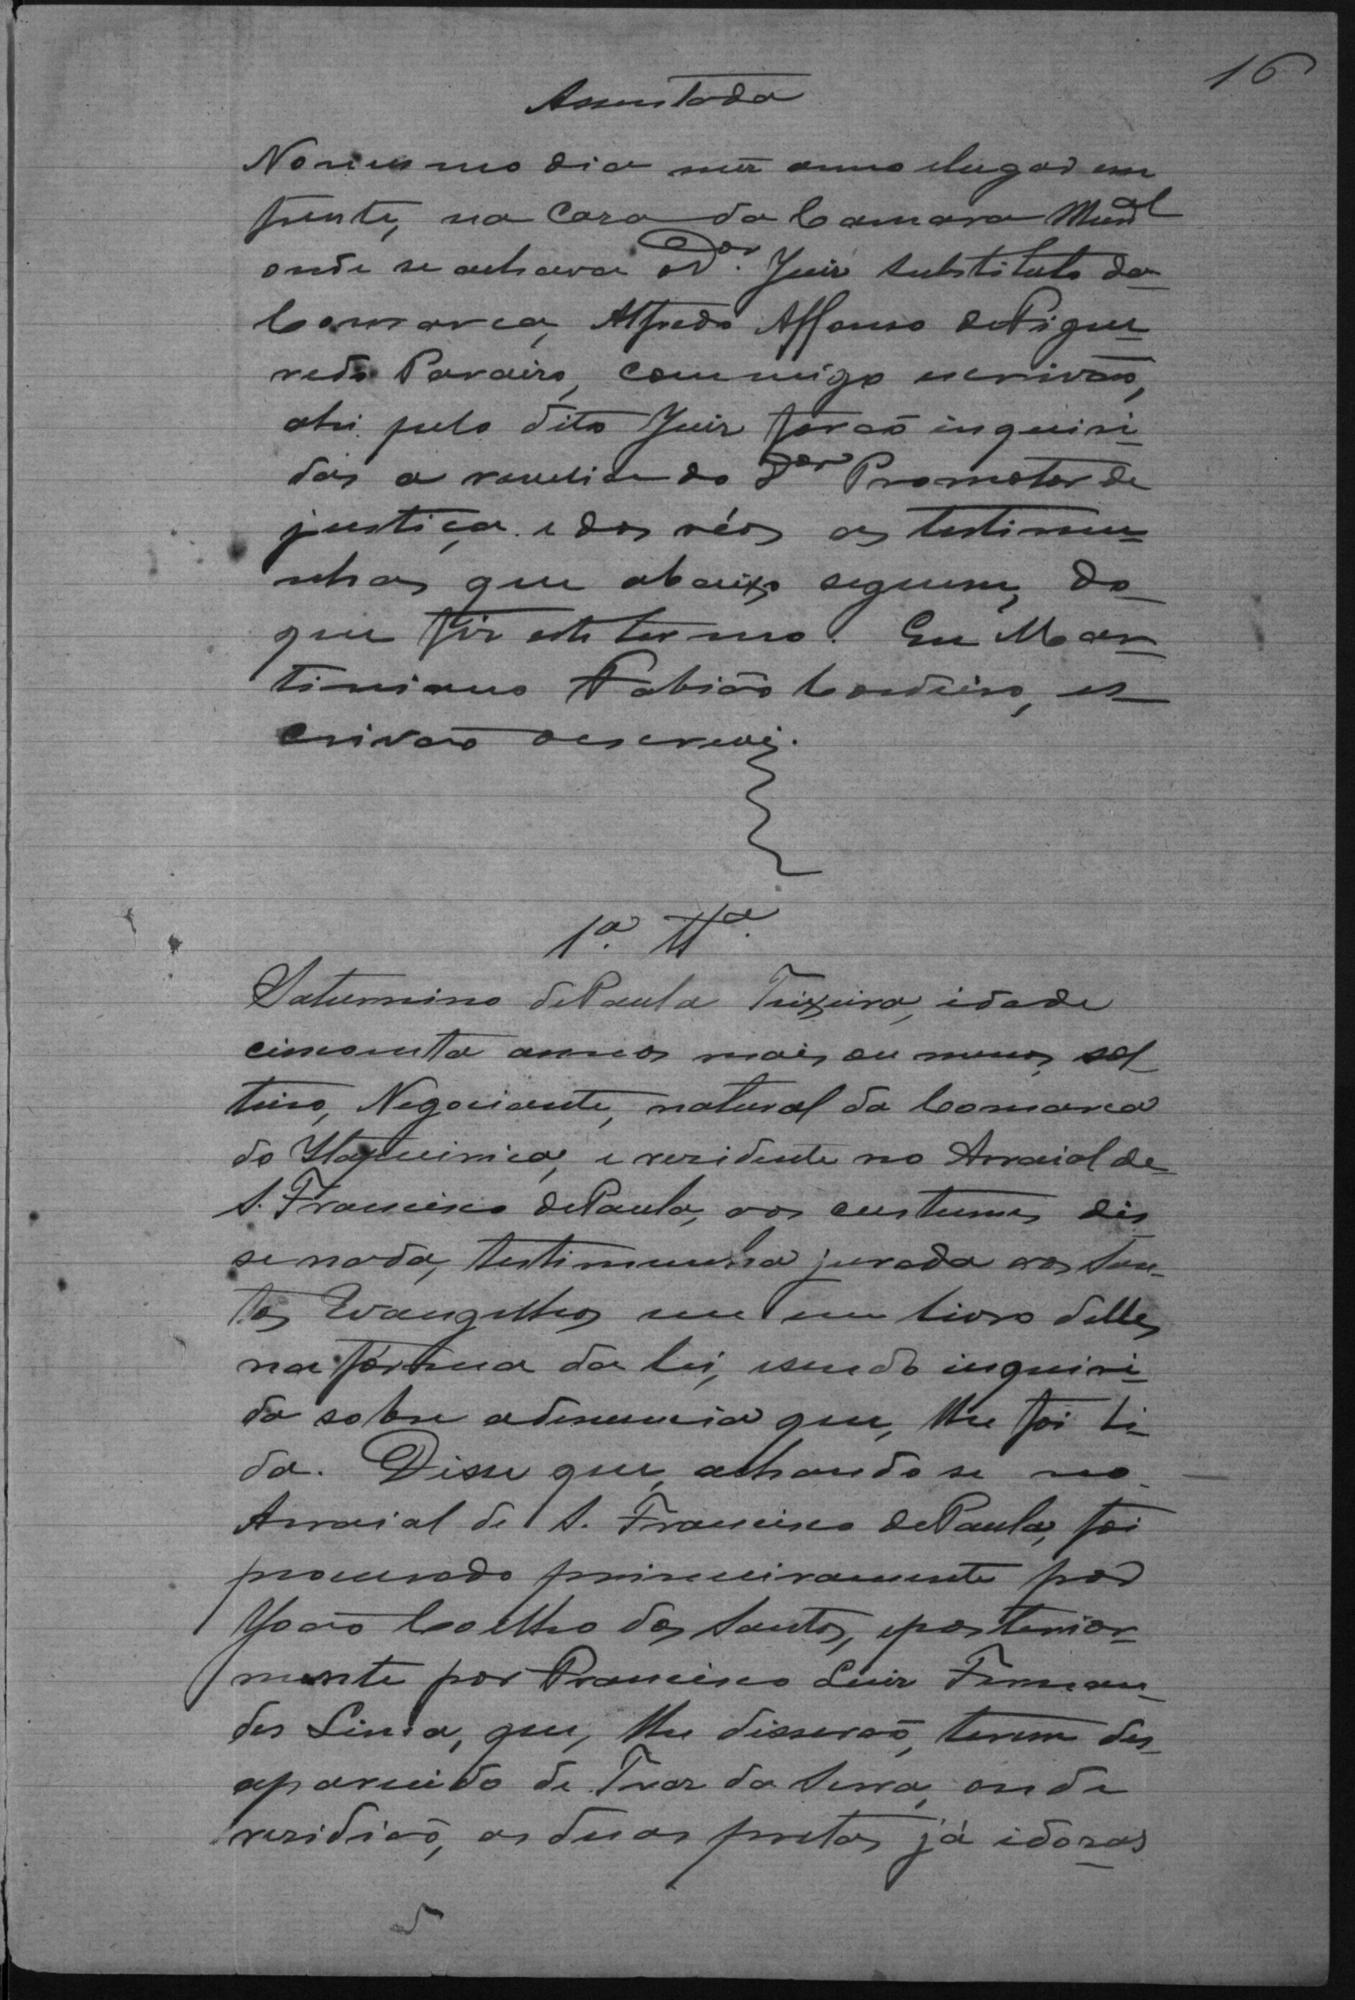 16
Assentada
No mesmo dia mez anno e lugar em
frente, na Casa da Camara Mun.al
onde se achava o D.or Juiz substituto da
Comarca, Alfredo Affonso de Figue
redo Paraizo, commigo escrivão,
ahi pelo dito Juiz forão inquiri
das a revelia do D.or Promotor de
justiça e dos réos as testimu=
nhas que abaixo seguem, do
que fiz este termo. Eu Mar
timiano Fabião Cordeiro, es
crivão o escrevi.
1.a Tt.a
Saturnino de Paula Teixeira, idade
cincoenta annos mais ou menos, sol
teiro, Negociante, natural da Comarca
do Itapecirica, e rezidente no Arraial de
S. Francisco de Paula, aos custumes dis
se nada, testimunha jurada aos San
tos Evangelhos em um livro delles
na fórma da lei, e sendo inquiri
da sobre a denuncia que, lhe foi li
da. Disse que, achando se no
Arraial de S. Francisco de Paula, foi
procurado primeiramente por
João Coelho dos Santos, e posterior
mente por Francisco Luiz Fernan
des Lima, que, lhe disserão, terem des
aparecido de Traz da Serra, onde
rezidião, as duas pretas já idozas